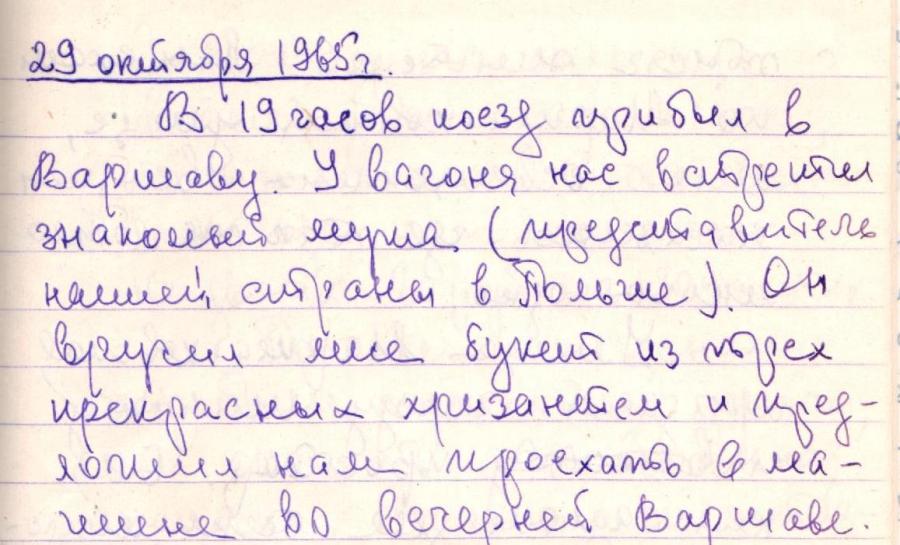 29 октября 1965 г.
В 19 часов поезд прибыл в
Варшаву. У вагона нас встретил
знакомый мужа (представитель
нашей страны в Польше). Он
вручил мне букет из трех
прекрасных хризантем и пред-
ложил нам проехать в ма-
шине во вечерней Варшаве.